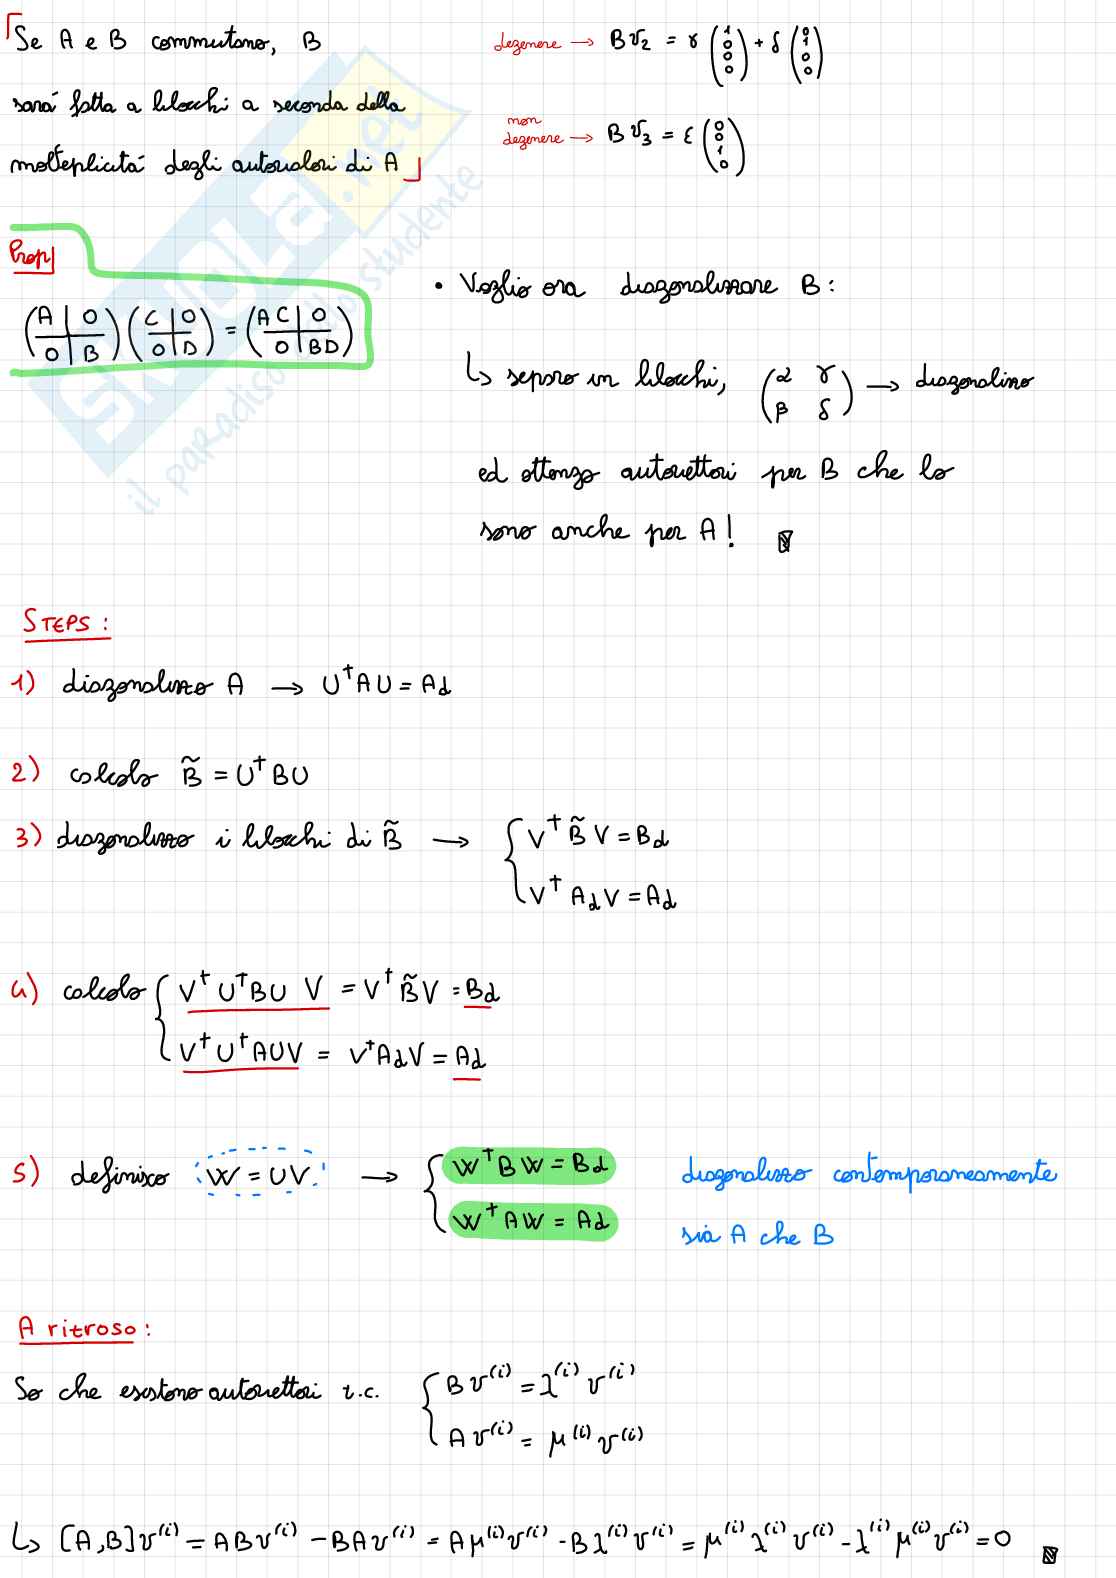 Se A e B commutano, B
sarà fatta a blocchi a seconda della
molteplicità degli autovalori di A
degenere → B v₂ = γ (1 0 0 0) + δ (0 1 0 0)
non degenere → B v₃ = ε (0 0 1 0)
Prop
(A | 0 / 0 | B) (C | 0 / 0 | D) = (AC | 0 / 0 | BD)
• Voglio ora diagonalizzare B:
↳ separo in blocchi, (α γ / β δ) → diagonalizzo
ed ottengo autovettori per B che lo
sono anche per A!
SKUOLA.net
il paradiso dello studente
STEPS:
1) diagonalizzo A → U†AU = Ad
2) calcolo B̃ = U†BU
3) diagonalizzo i blocchi di B̃ → { V†B̃V = Bd
V†AdV = Ad
4) calcolo { V†U†BU V = V†B̃V = Bd
V†U†AUV = V†AdV = Ad
5) definisco W = UV → { W†BW = Bd
W†AW = Ad
diagonalizzo contemporaneamente
sia A che B
A ritroso:
So che esistono autovettori t.c. { B v⁽ⁱ⁾ = λ⁽ⁱ⁾ v⁽ⁱ⁾
A v⁽ⁱ⁾ = μ⁽ⁱ⁾ v⁽ⁱ⁾
↳ [A,B]v⁽ⁱ⁾ = ABv⁽ⁱ⁾ - BAv⁽ⁱ⁾ = Aμ⁽ⁱ⁾v⁽ⁱ⁾ - Bλ⁽ⁱ⁾v⁽ⁱ⁾ = μ⁽ⁱ⁾λ⁽ⁱ⁾v⁽ⁱ⁾ - λ⁽ⁱ⁾μ⁽ⁱ⁾v⁽ⁱ⁾ = 0